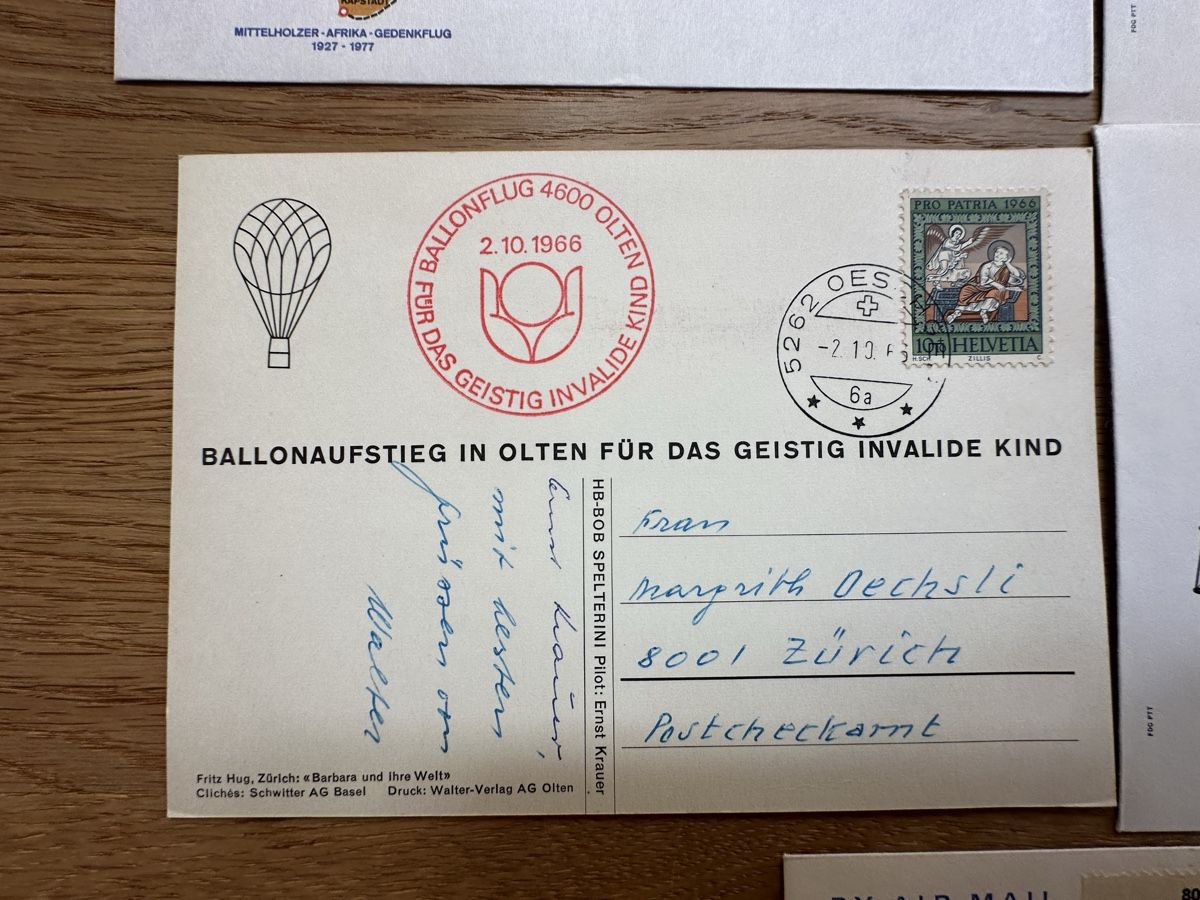 KAPSTADT
MITTELHOLZER-AFRIKA-GEDENKFLUG
1927 - 1977
FDC PTT
BALLONFLUG 4600 OLTEN
FÜR DAS GEISTIG INVALIDE KIND
2.10.1966
PRO PATRIA 1966
10+ HELVETIA
H.SCH. ZILLIS C.
5262 OES
-2.10.6
6a
BALLONAUFSTIEG IN OLTEN FÜR DAS GEISTIG INVALIDE KIND
Ernst Krauer,
mit besten
grüssen von
Walter
HB-BOB SPELTERINI Pilot: Ernst Krauer
Frau
Margrith Oechsli
8001 Zürich
Postcheckamt
Fritz Hug, Zürich: «Barbara und ihre Welt»
Clichés: Schwitter AG Basel Druck: Walter-Verlag AG Olten
FDC PTT
BY AIR MAIL
80